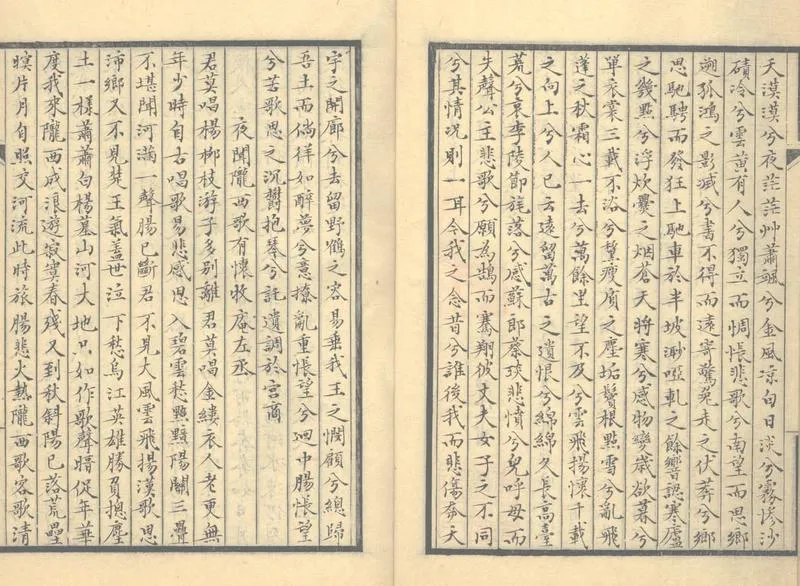 天漠漠兮夜茫茫艸蕭颯兮金風凉白日淡兮霧慘沙
磧冷兮雲黃有人兮獨立而惆悵悲歌兮南望而思鄉
遡孤鴻之影滅兮書不得而遠寄驚兔走之伏莽兮鄉
思馳騁而發狂上馳車於半坡渺啞軋之餘響認寒廬
之幾點兮浮炊爨之烟蒼天將寒兮感物變歲欲暮兮
單衣裳三載不浴兮蟄瘦殯之塵垢鬢根點雪兮亂飛
蓬之秋霜心一去兮萬餘里望不及兮雲飛揚懷千載
之向上兮人已云遠留萬古之遺恨兮綿綿久長高臺
荒兮哀李陵節旄落兮感蘇郎蔡琰悲憤兮兒呼母而
失聲公主悲歌兮願為鵠而騫翔彼丈夫女子之不同
兮其情況則一耳令我之念昔兮誰後我而悲傷奈天
宇之開廊兮去留野鶴之容易垂我王之憫顧兮總歸
吾土而倘徉如醉夢兮意撩亂重悵望兮迴中腸悵望
兮苦歌思之沉鬱抱琴兮託遺調於宮商
夜聞隴西歌有懷牧庵左丞
君莫唱楊柳枝游子多別離君莫唱金縷衣人老更無
年少時自古唱歌易悲感思入碧雲愁黯黯陽關三疊
不堪聞河滿一聲腸已斷君不見大風雲飛揚漢歌思
沛鄉又不見楚王氣蓋世泣下愁烏江英雄勝負摠塵
土一樣蕭蕭白楊墓山河大地只如作歌聲暗促年華
度我來隴西成浪遊寂寞春殘又到秋斜陽已落荒壘
暝片月自照交河流此時旅腸悲火熱隴西歌客歌清